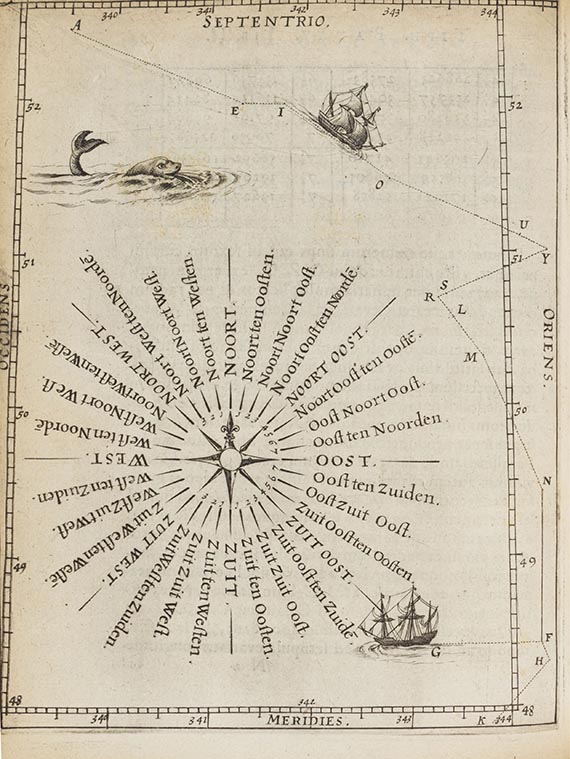 340 341 342 343 344
SEPTENTRIO.
A
52 52
E I
O
U
Y
51 51
S
R
L
M
OCCIDENS
ORIENS.
NOORT.
Noort ten Oosten.
Noort Noort Oost.
Noort Oost ten Norde.
NOORT OOST.
Noort Oost ten Oostē.
Oost Noort Oost.
Oost ten Noorden.
OOST.
Oost ten Zuiden.
Oost Zuit Oost.
Zuit Oost ten Oosten.
ZUIT OOST.
Zuit Oost ten Zuidē.
Zuit Zuit Oost.
Zuit ten Oosten
ZUIT.
Zuit ten Westen.
Zuit Zuit West.
Zuit Westen Zuiden.
ZUIT WEST.
Zuit West ten Westē
West Zuit West.
West ten Zuiden.
WEST.
West ten Noordē
West Noort West.
Noort West ten Westē
NOORT WEST.
Noort West ten Noordē
Noort Noort West.
Noort ten Westen.
50 50
N
49 49
F
G
H
K
48 48
340 341 342 343 344
MERIDIES.